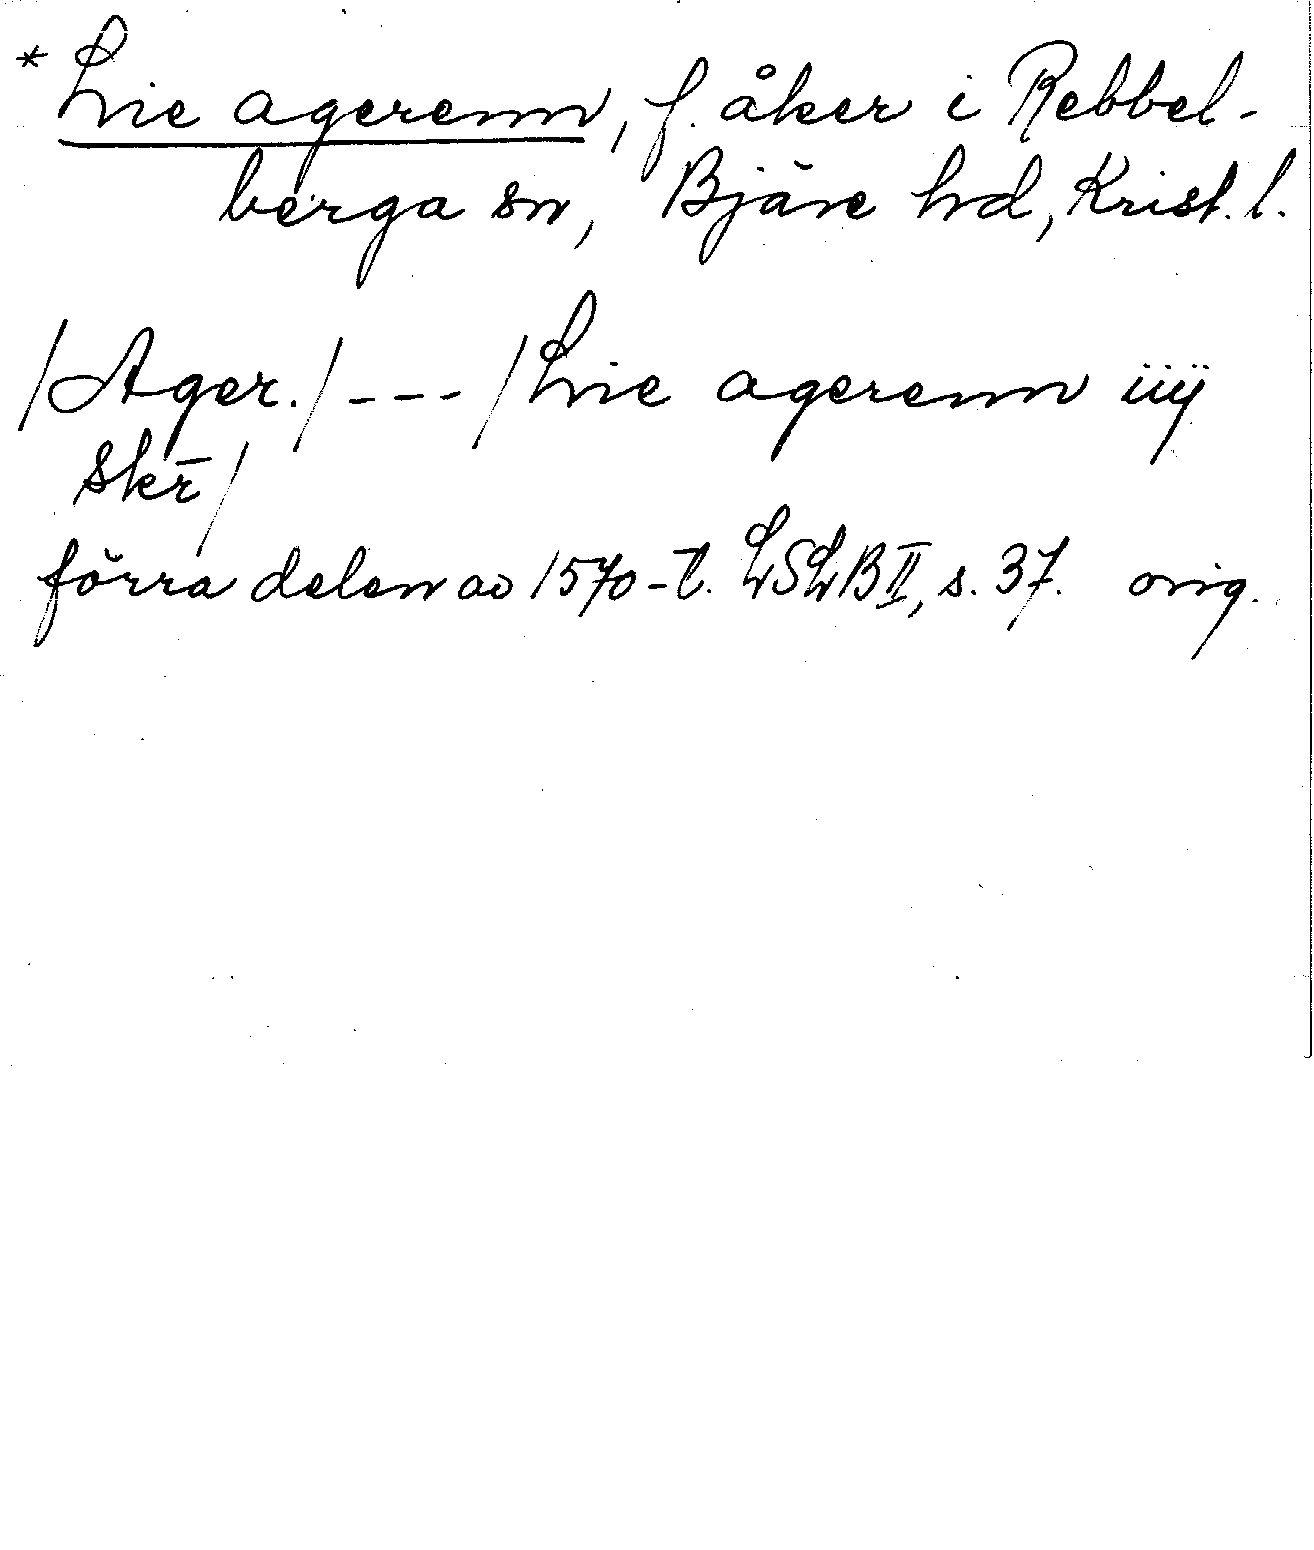 * Lie agerenn, f. åker i Rebbel-
berga sn, Bjäre hd, Krist. l.
/Ager./ --- /Lie agerenn iiij
skr̄/
förra delen av 1570-t. LSLB II, s. 37. orig.